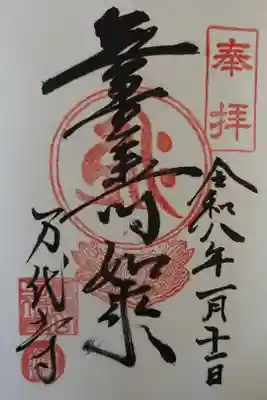 奉拝
令和八年一月十一日
無量寿如来
万代寺